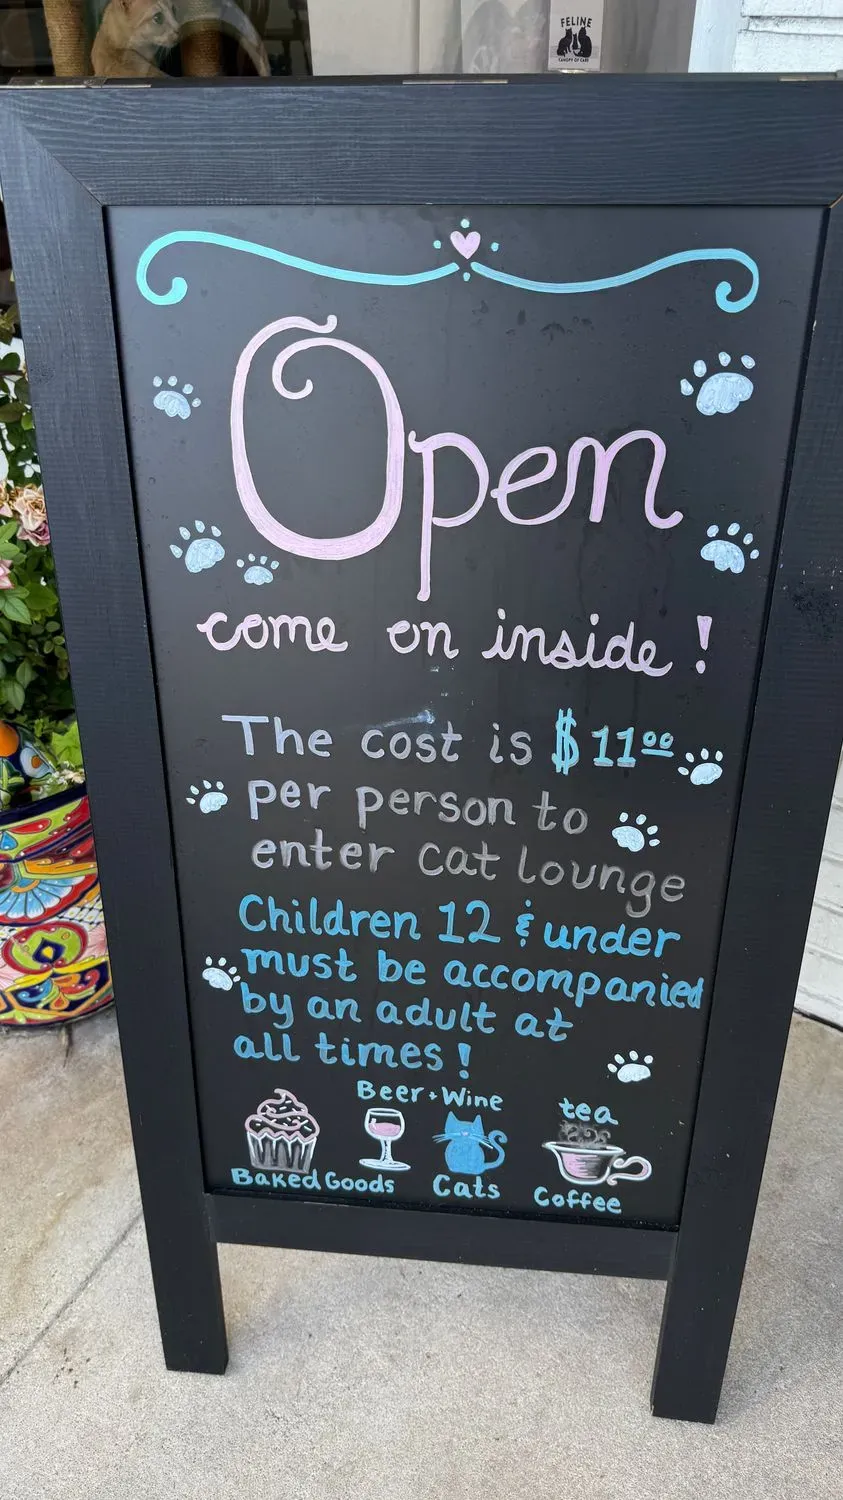 FELINE
CANOPY OF CARE
Open
come on inside!
The cost is $1100
per person to
enter cat lounge
Children 12 & under
must be accompanied
by an adult at
all times!
Beer + Wine
tea
Baked Goods
Cats
Coffee